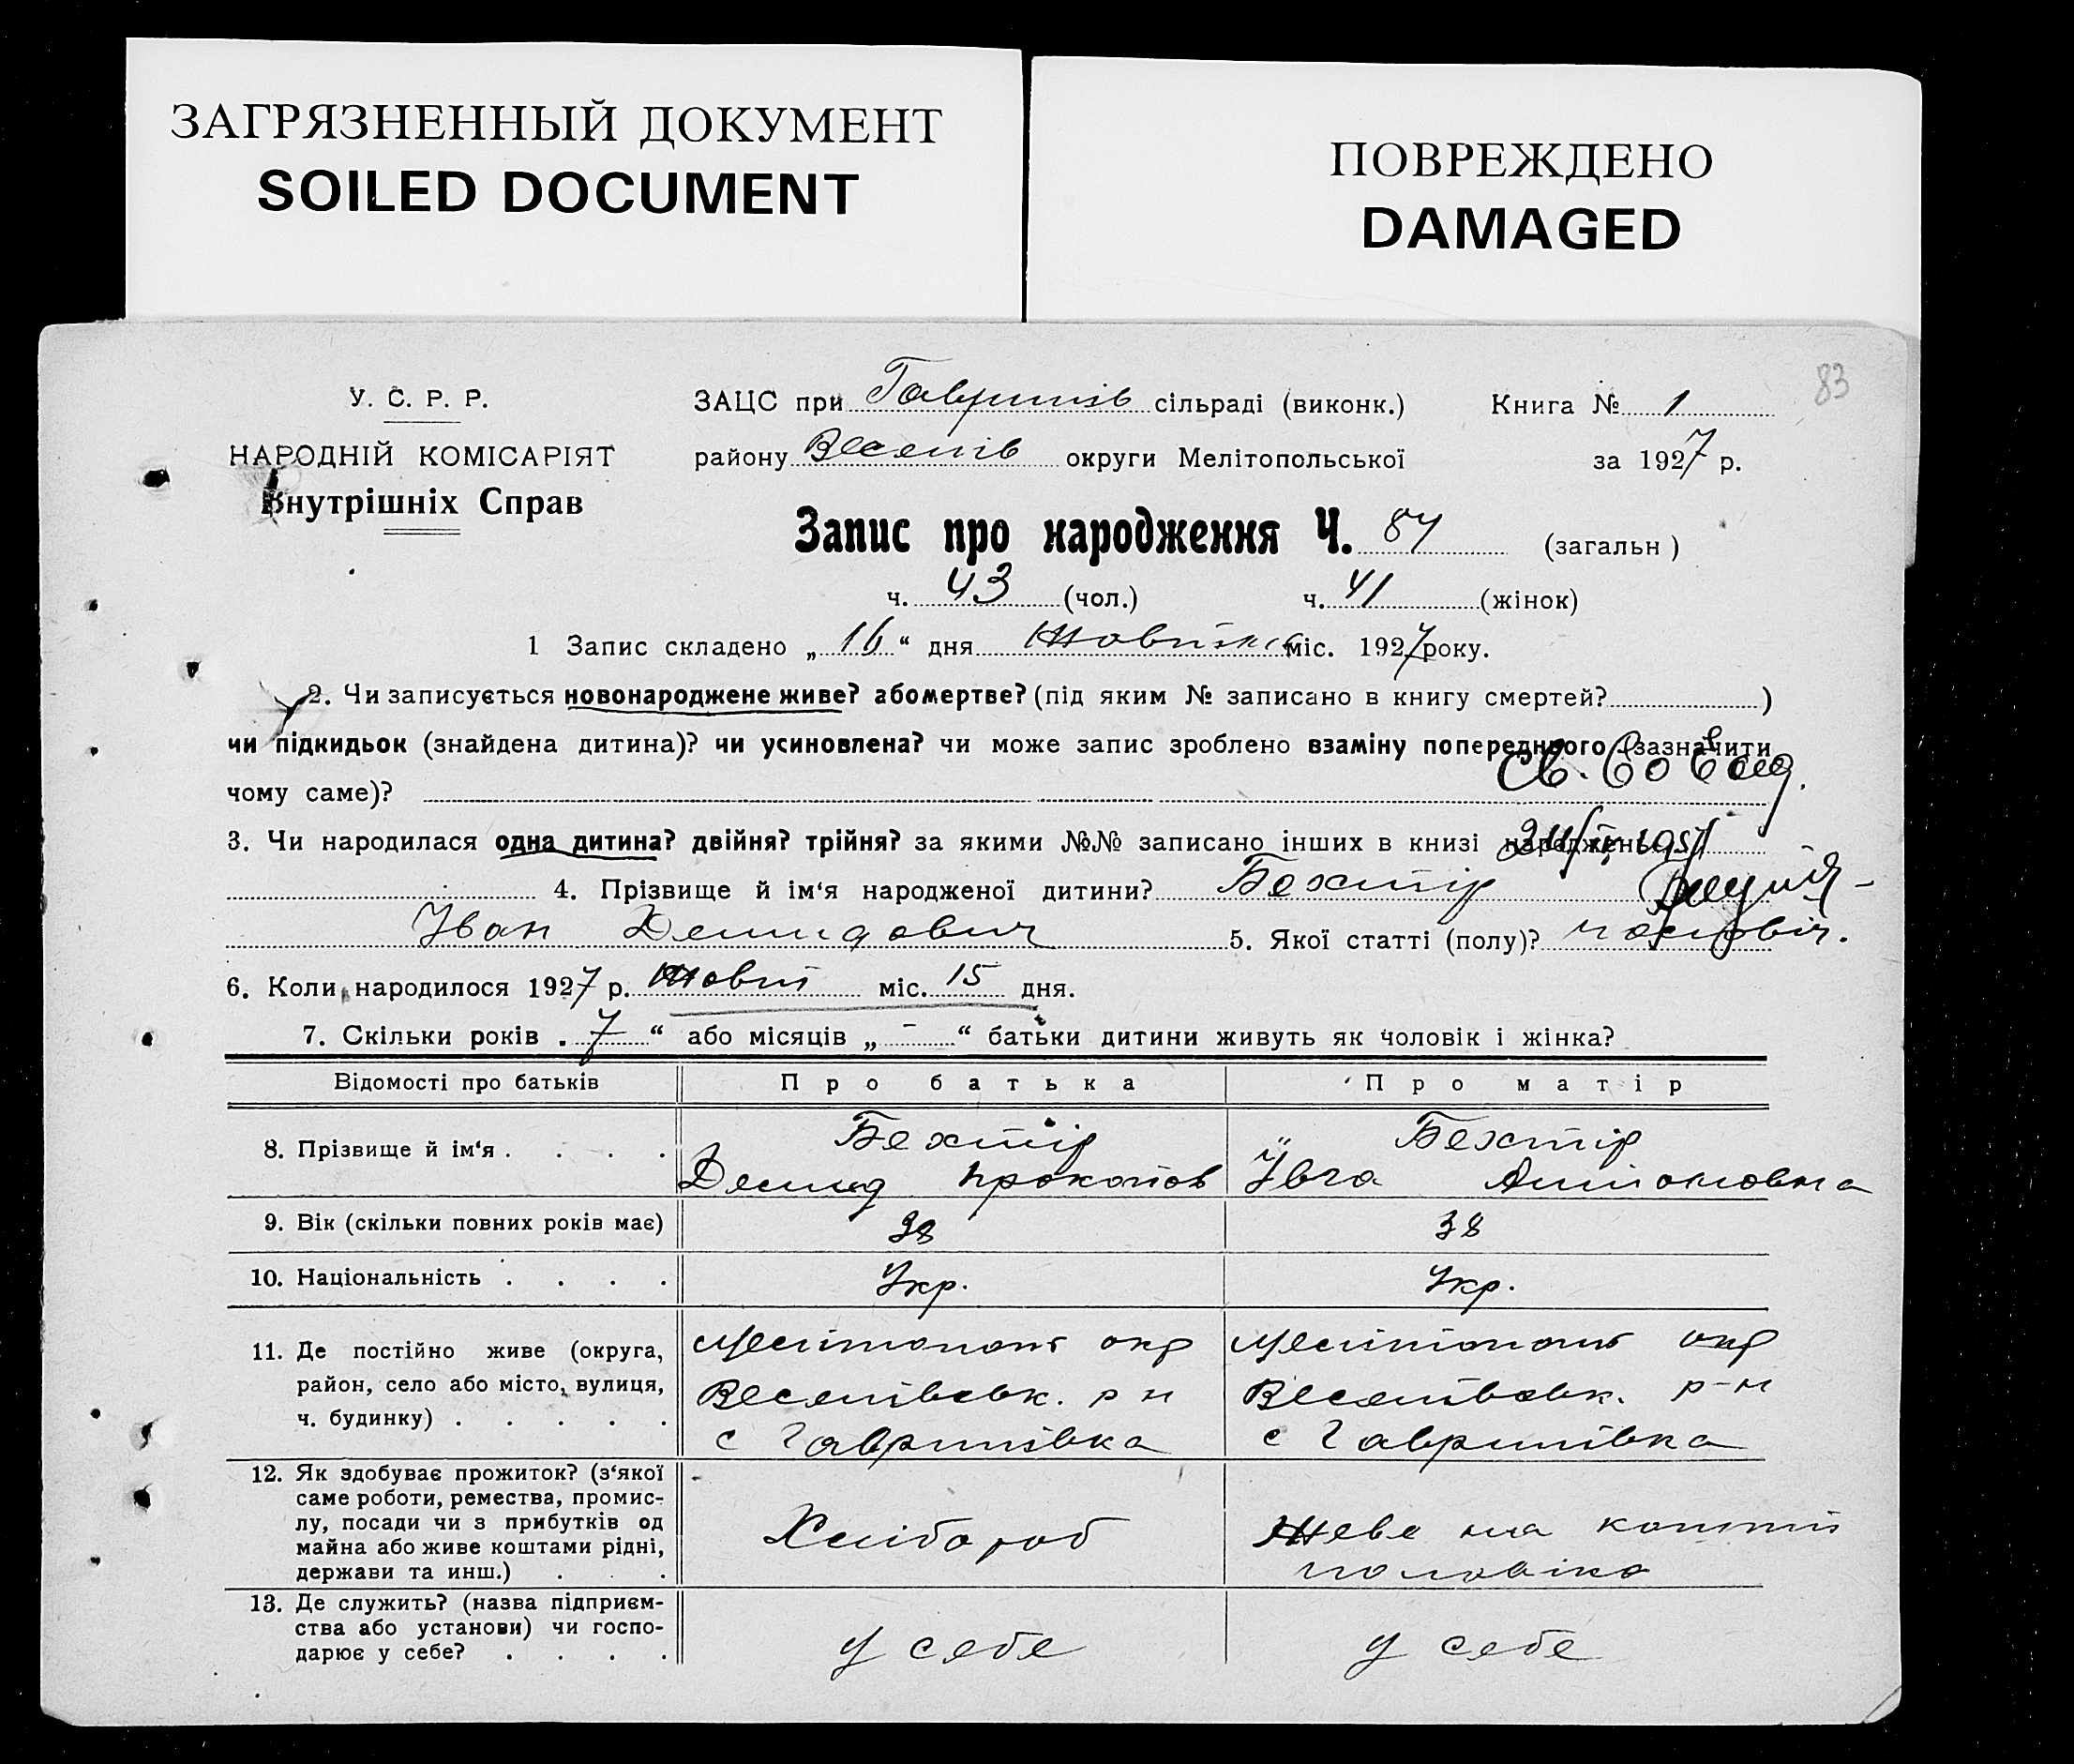 ЗАГРЯЗНЕННЫЙ ДОКУМЕНТ
SOILED DOCUMENT
ПОВРЕЖДЕНО
DAMAGED
83
У. С. Р. Р.
НАРОДНІЙ КОМІСАРІЯТ
Внутрішніх Справ
ЗАЦС при Гаврилів сільраді (виконк.) Книга № 1
району Веселів округи Мелітопольської за 1927 р.
Запис про народження Ч. 84 (загальн)
ч. 43 (чол.) ч. 41 (жінок)
1 Запис складено „16“ дня Жовтня міс. 1927 року.
2. Чи записується новонароджене живе? або мертве? (під яким № записано в книгу смертей? )
чи підкидьок (знайдена дитина)? чи усиновлена? чи може запис зроблено взаміну попереднього (зазначити
чому саме)?
3. Чи народилася одна дитина? двійня? трійня? за якими №№ записано інших в книзі народжень
4. Прізвище й ім‘я народженої дитини? Бехтір
Іван Демидович 5. Якої статті (полу)? чоловіч.
6. Коли народилося 1927 р. Жовт міс. 15 дня.
7. Скільки років „7“ або місяців „-“ батьки дитини живуть як чоловік і жінка?
Відомості про батьків Про батька Про матір
8. Прізвище й ім‘я . . . . Бехтір Бехтір
Демид Прокопов Ївга Антоновна
9. Вік (скільки повних років має) 38 38
10. Національність . . . . Укр. Укр.
11. Де постійно живе (округа, Мелітополь окр Мелітополь окр
район, село або місто, вулиця, Веселівськ. р н Веселівськ. р-н
ч. будинку) . . . . . с Гаврилівка с Гаврилівка
12. Як здобуває прожиток? (з‘якої
саме роботи, ремества, промис-
лу, посади чи з прибутків од Хлібороб Живе на кошти
майна або живе коштами рідні, чоловіка
держави та инш.) . . .
13. Де служить? (назва підприєм-
ства або установи) чи госпо- у себе у себе
дарює у себе? . . . .